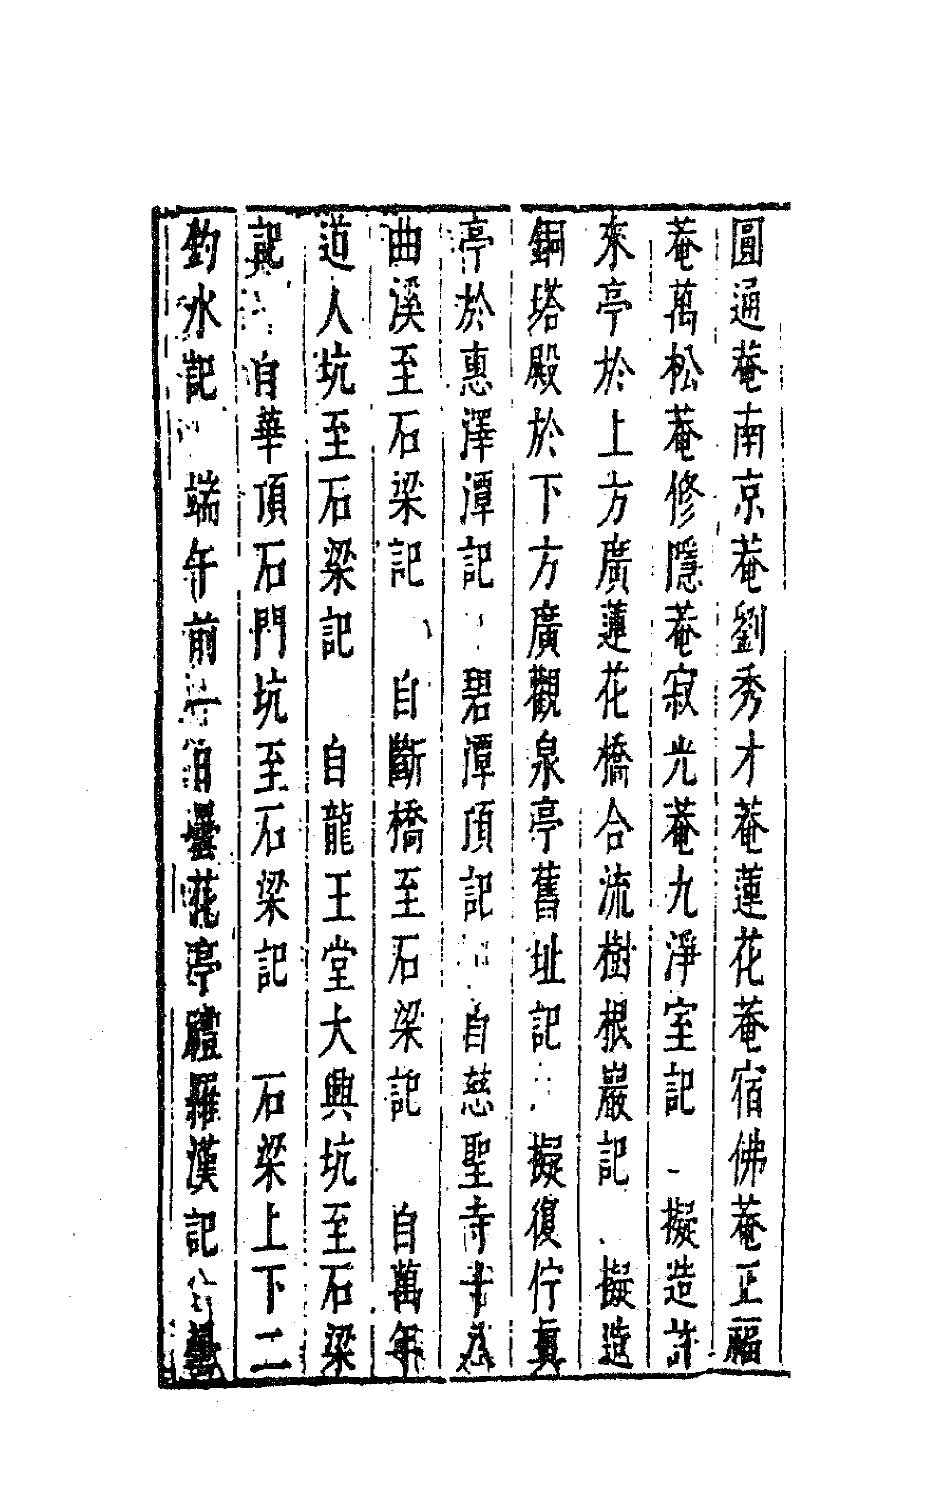 圓通菴南京菴劉秀才菴蓮花菴宿佛菴正福
菴萬松菴修隱菴寂光菴九淨室記 擬造許
來亭於上方廣蓮花橋合流樹根巖記 擬造
銅塔殿於下方廣觀泉亭舊址記 擬復佇真
亭於惠澤潭記 碧潭頂記 自慈聖寺十八
曲溪至石梁記 自斷橋至石梁記 自萬年
道人坑至石梁記 自龍王堂大興坑至石梁
記 自華頂石門坑至石梁記 石梁上下二
釣水記 端午前一日曇花亭禮羅漢記